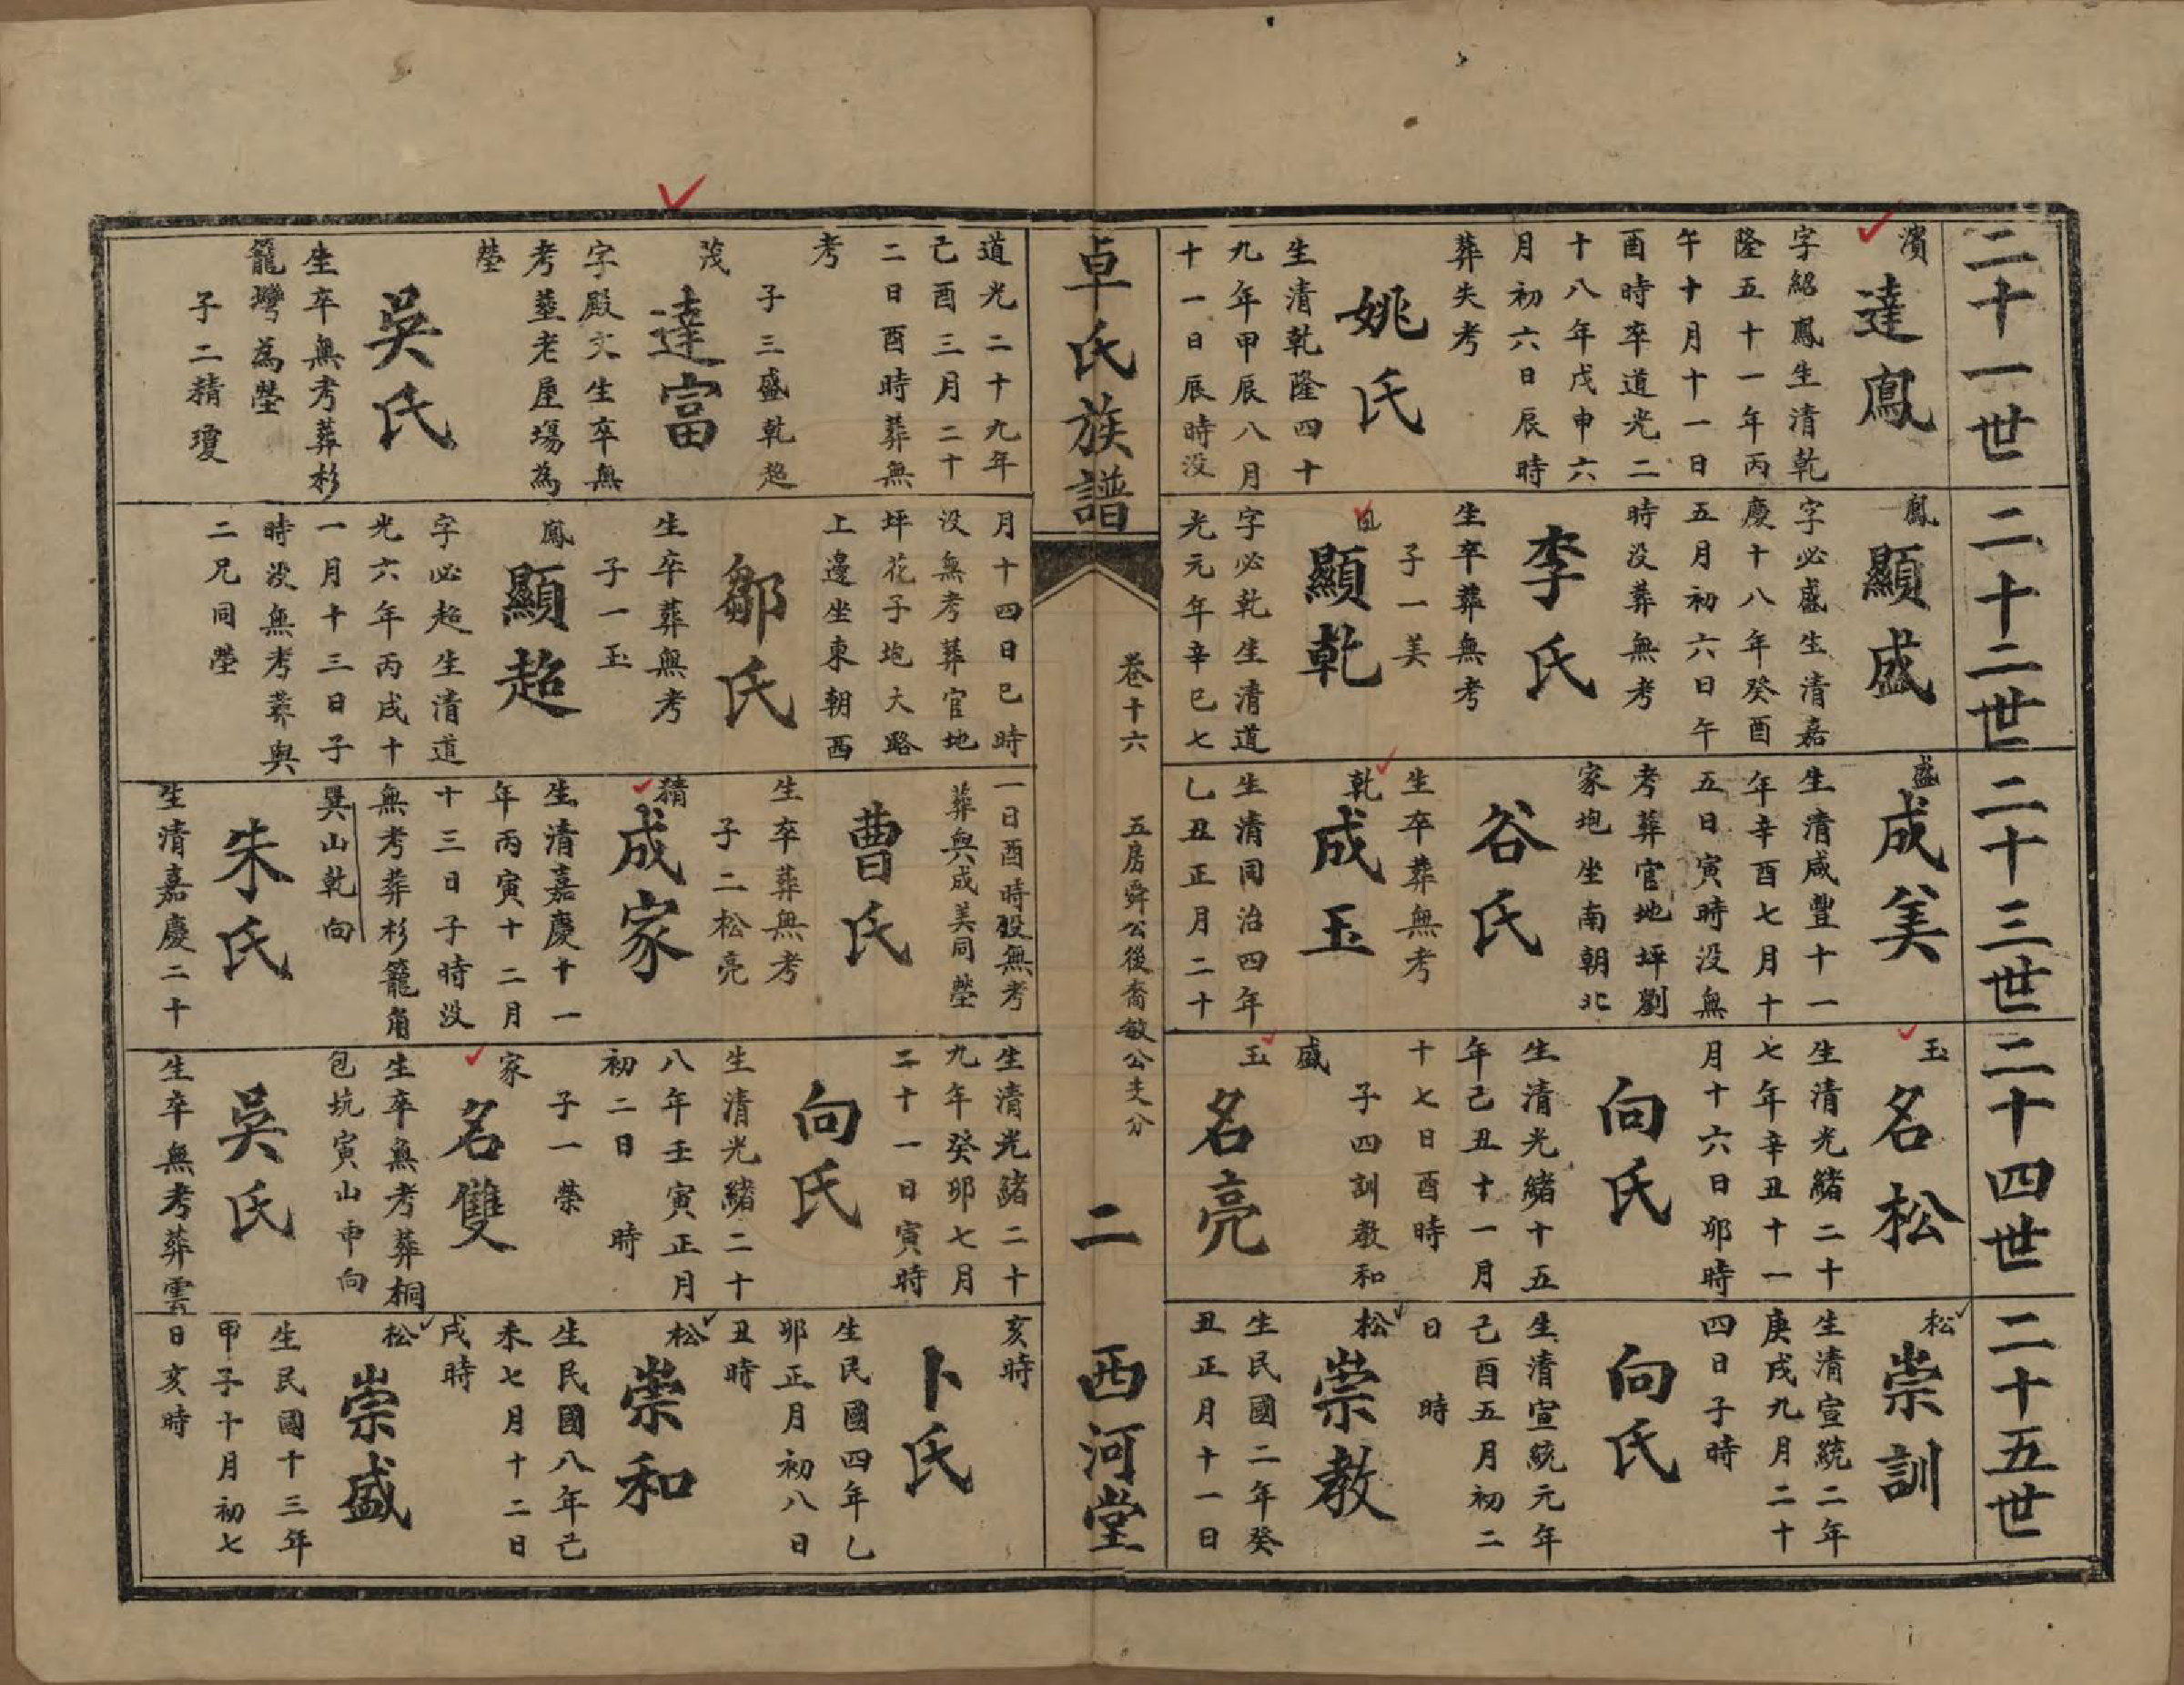 二十一世
濱
達鳳
字紹鳳生清乾
隆五十一年丙
午十月十一日
酉時卒道光二
十八年戊申六
月初六日辰時
葬失考
姚氏
生清乾隆四十
九年甲辰八月
十一日辰時没
二十二世
鳳
顯盛
字必盛生清嘉
慶十八年癸酉
五月初六日午
時没葬無考
李氏
生卒葬無考
子一美
顯乾
字必乾生清道
光元年辛巳七
二十三世
盛
成美
生清咸豐十一
年辛酉七月十
五日寅時没無
考葬官地坪劉
家坨坐南朝北
谷氏
生卒葬無考
乾
成玉
生清同治四年
乙丑正月二十
二十四世
玉
名松
生清光緒二十
七年辛丑十一
月十六日卯時
向氏
生清光緒十五
年己丑十一月
十七日酉時
子四訓教和
盛
玉
名亮
二十五世
松
崇訓
生清宣統二年
庚戌九月二十
四日子時
向氏
生清宣統元年
己酉五月初二
日 時
松
崇教
生民國二年癸
丑正月十一日
卓氏族譜
卷十六
五房舜公後裔敏公支分
二
西河堂
道光二十九年
己酉三月二十
二日酉時葬無
考
子三盛乾超
茂
達富
字殿文生卒無
考塟老屋塲為
塋
吳氏
生卒無考葬杉
籠灣為塋
子二精瓊
月十四日巳時
没無考葬官地
坪花子坨大路
上邊坐東朝西
鄒氏
生卒葬無考
子一玉
鳳
顯超
字必超生清道
光六年丙戌十
一月十三日子
時没無考葬與
二兄同塋
一日酉時殁無考
葬與成美同塋
曹氏
生卒葬無考
子二松亮
精
成家
生清嘉慶十一
年丙寅十二月
十三日子時没
無考葬杉籠角
巽山乾向
朱氏
生清嘉慶二十
生清光緒二十
九年癸卯七月
二十一日寅時
向氏
生清光緒二十
八年壬寅正月
初二日 時
子一榮
家
名雙
生卒無考葬桐
包坑寅山申向
吳氏
生卒無考葬雲
亥時
卜氏
生民國四年乙
卯正月初八日
丑時
松
崇和
生民國八年己
未七月十二日
戌時
松
崇盛
生民國十三年
甲子十月初七
日亥時